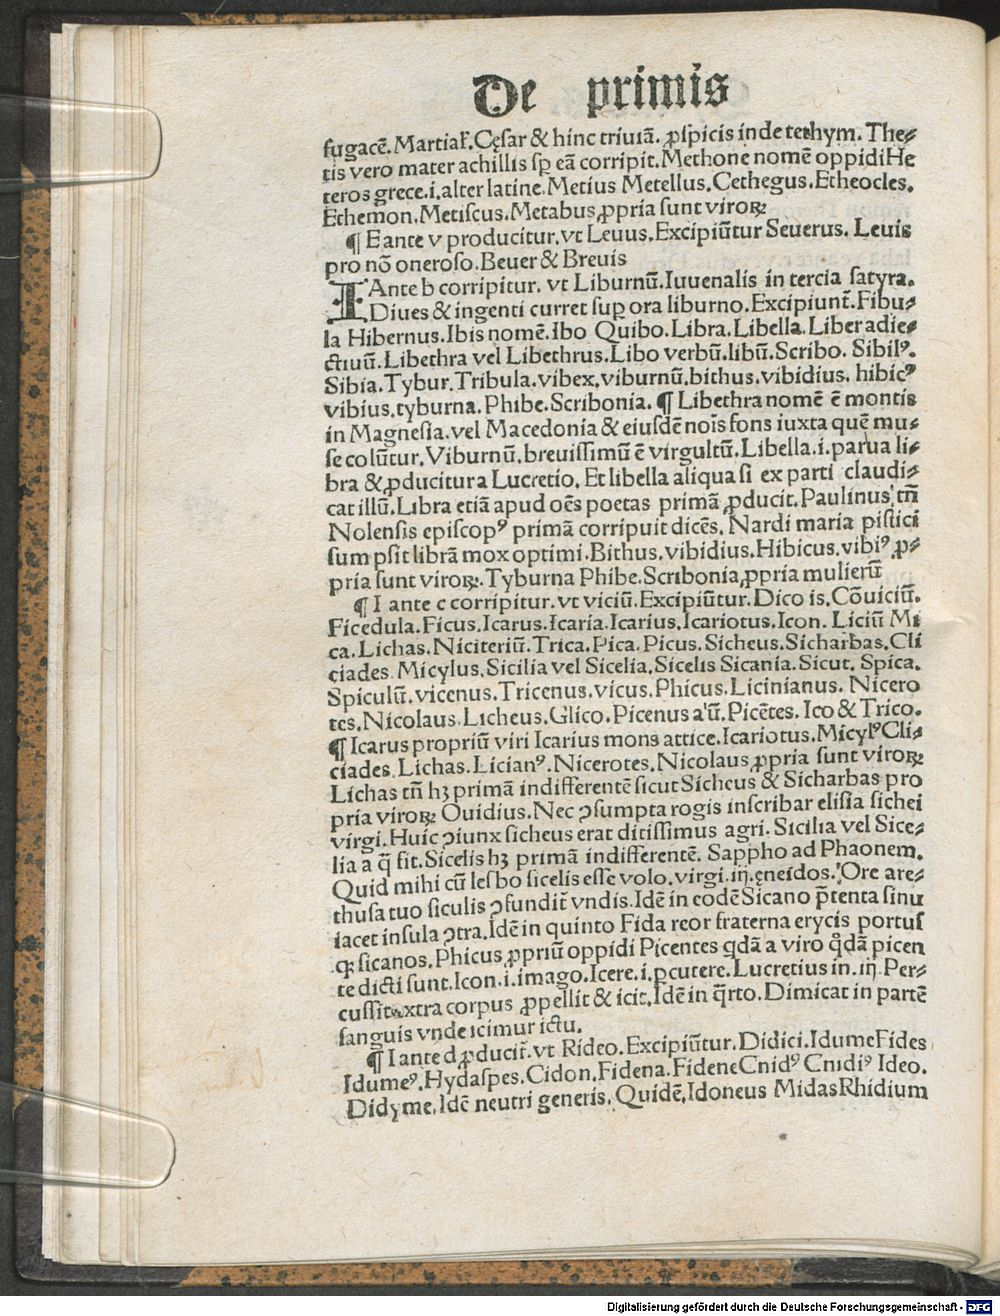 De primis
fugacē. Martial̕. Cęsar & hinc triuiā. ꝓspicis inde tethym. The⸗
tis vero mater achillis sꝑ eā corripit. Methone nomē oppidi He
teros grece .i. alter latine. Metius Metellus. Cethegus. Etheocles.
Ethemon. Metiscus. Metabus ꝓpria sunt viroꝝ
¶ E ante v producitur. vt Leuus. Excipiūtur Seuerus. Leuis
pro nō oneroso. Beuer & Breuis
I Ante b corripitur. vt Liburnū. Iuuenalis in tercia satyra.
Diues & ingenti curret suꝑ ora liburno. Excipiunt̄. Fibu⸗
la Hibernus. Ibis nomē. Ibo Quibo. Libra. Libella. Liber adie⸗
ctiuū. Libethra vel Libethrus. Libo verbū. libū. Scribo. Sibilꝰ.
Sibia. Tybur. Tribula. vibex. viburnū. bithus. vibidius. hibicꝰ
vibius. tyburna. Phibe. Scribonia. ¶ Libethra nomē ē montis
in Magnesia. vel Macedonia & eiusdē nois̄ fons iuxta quē mu⸗
se colūtur. Viburnū. breuissimū ē virgultū. Libella .i. parua li⸗
bra & ꝓducitur a Lucretio. Et libella aliqua si ex parti claudi⸗
cat illū. Libra etiā apud oēs poetas primā ꝓducit. Paulinus tn̄
Nolensis episcopꝰ primā corripuit dicēs. Nardi maria pistici
sumpsit librā mox optimi. Bithus. vibidius. Hibicus. vibiꝰ ꝓ⸗
pria sunt viroꝝ. Tyburna Phibe. Scribonia ꝓpria mulierū
¶ I ante c corripitur. vt viciū. Excipiūtur. Dico is. Cōuiciū.
Ficedula. Ficus. Icarus. Icaria. Icarius. Icariotus. Icon. Liciū Mi
ca. Lichas. Niciteriū. Trica. Pica. Picus. Sicheus. Sicharbas. Cli
ciades. Micylus. Sicilia vel Sicelia. Sicelis Sicania. Sicut. Spica.
Spiculū. vicenus. Tricenus. vicus. Phicus. Licinianus. Nicero
tes. Nicolaus. Licheus. Glico. Picenus a'ū. Picētes. Ico & Trico.
¶ Icarus propriū viri Icarius mons attice. Icariotus. Micylꝰ Cli⸗
ciades. Lichas. Licianꝰ. Nicerotes. Nicolaus ꝓpria sunt viroꝝ
Lichas tn̄ hꝫ primā indifferentē sicut Sicheus & Sicharbas pro
pria viroꝝ Ouidius. Nec ꝯsumpta rogis inscribar elisia sichei
virgi. Huic ꝯiunx sicheus erat ditissimus agri. Sicilia vel Sice⸗
lia a q̄ fit. Sicelis hꝫ primā indifferentē. Sappho ad Phaonem.
Quid mihi cū lesbo sicelis esse volo. virgi. iij. ęneidos. Ore are⸗
thusa tuo siculis ꝯfundit̄ vndis. Idē in eodē Sicano p̄tenta sinu
iacet insula ꝯtra. Idē in quinto Fida reor fraterna erycis portus
qꝫ sicanos. Phicus ꝓpriū oppidi Picentes qdā a viro qdā picen
te dicti sunt. Icon .i. imago. Icere .i. ꝑcutere. Lucretius in. iij. Per⸗
cussit extra corpus ꝓpellit & icit. Idē in q̄rto. Dimicat in partē
sanguis vnde icimur ictu.
¶ I ante d ꝓducit̄. vt Rideo. Excipiūtur. Didici. Idume Fides
Idumeꝰ. Hydaspes. Cidon. Fidena. Fidene Cnidꝰ Cnidiꝰ Ideo.
Didyme. Idē neutri generis. Quidē. Idoneus Midas Rhidium
Digitalisierung gefördert durch die Deutsche Forschungsgemeinschaft - DFG